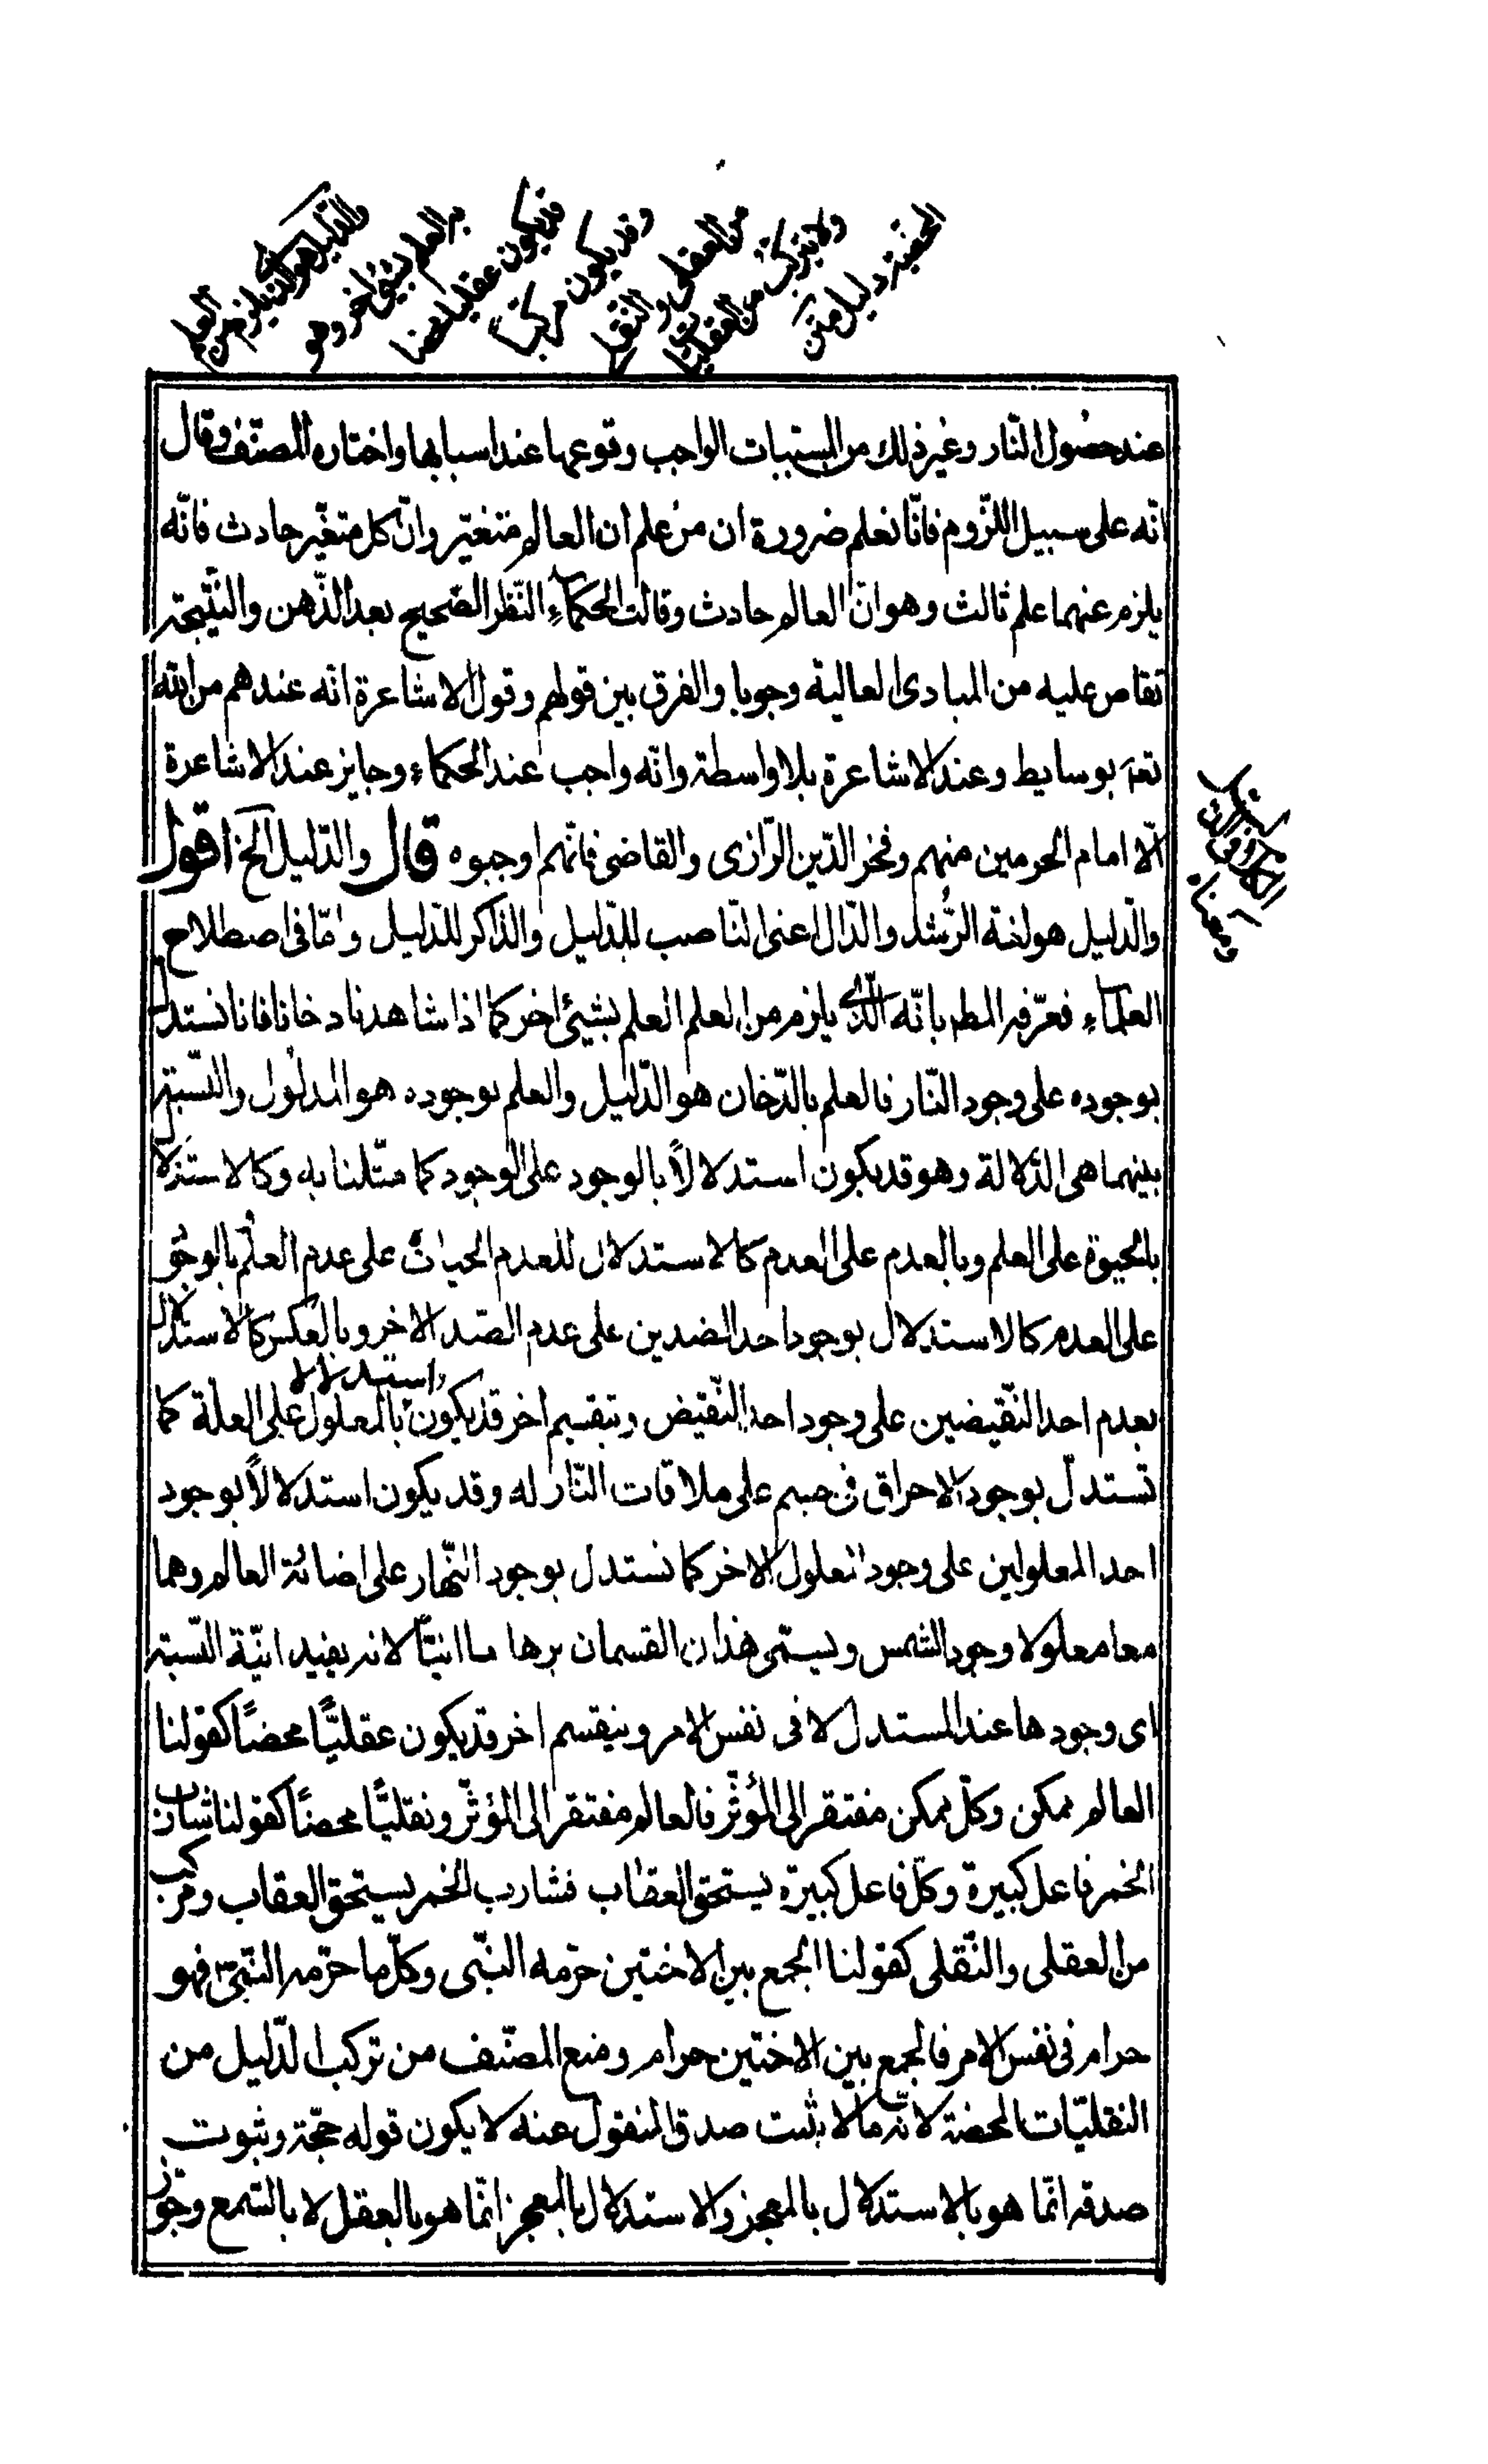 والدليل هو الذي يلزم من العلم
به العلم بشيء اخر وهو
قد يكون عقليا محضا
وقد يكون مركبا
من العقلي والنقلي
ولا يتركب من النقليات
المحضة دليل متن
عند حصول النّار وغير ذلك من المسببات الواجب وقوعها عند اسبابها واختاره المصنّف وقال
انّه على سبيل اللزوم فانّا نعلم ضرورة ان من علم ان العالم متغيّر وانّ كل متغيّر حادث فانّه
يلزم عنهما علم ثالث وهو انّ العالم حادث وقالت الحكماء النّظر الصّحيح يعد الذّهن والنّتيجة
تفاض عليه من المبادى العالية وجوبا والفرق بين قولهم وقول الاشاعرة انّه عندهم من الله
تعه بوسايط وعند الاشاعرة بلا واسطة وانّه واجب عند الحكماء وجايز عند الاشاعرة
الّا امام الحرمين منهم وفخر الدّين الرّازى والقاضى فانّهم اوجبوه قال والدّليل الخ اقول
والدّليل هو لغة الرّشد والدّال اعنى النّاصب للدّليل والذّاكر للدّليل وامّا فى اصطلاح
العلماء فعرّفه المطه بانّه الّذى يلزم من العلم العلم بشيئ اخر كما اذا شاهدنا دخانا فانا نستدل
بوجوده على وجود النّار فالعلم بالدّخان هو الدّليل والعلم بوجوده هو المدلول والنّسبة
بينهما هى الدّلالة وهو قد يكون استدلالاً بالوجود على الوجود كما مثّلنا به وكالاستدلا
بالحيوة على العلم وبالعدم على العدم كالاستدلال للعدم الحيات على عدم العلم بالوجو
على العدم كالاستدلال بوجود احد الضدين على عدم الضّد الاخر وبالعكس كالاستدلال
بعدم احد النّقيضين على وجود احد النّقيض وبتقسيم اخر قد يكون استدلالا بالمعلول على العلّة كما
تستدلّ بوجود الاحراق فى جسم على ملاقات النّار له وقد يكون استدلالاً بوجود
احد المعلولين على وجود المعلول الاخر كما نستدل بوجود النّهار على اضائة العالم وهما
معا معلولا وجود الشمس ويسمّى هذان القسمان برهانا انيّاً لانه يفيد انيّة النّسبة
اى وجودها عند المستدل لا فى نفس الامر وينقسم اخر قد يكون عقليّاً محضاً كقولنا
العالم ممكن وكلّ ممكن مفتقر الى المؤثّر فالعالم مفتقر الى المؤثّر ونقليّا محضاً كقولنا شارب
الخمر فاعل كبيرة وكلّ فاعل كبيرة يستحق العقاب فشارب الخمر يستحق العقاب ومركب
من العقلى والنّقلى كقولنا الجمع بين الاختين حرّمه النّبى وكلّ ما حرّمه النّبىّ فهو
حرام فى نفس الامر فالجمع بين الاختين حرام ومنع المصنّف من تركب الدّليل من
النقليّات المحضة لانّه ما لا يثبت صدق المنقول عنه لا يكون قوله حجّة وثبوت
صدقه انّما هو بالاستدلال بالمعجز والاستدلال بالمعجز انّما هو بالعقل لا بالسّمع وجوّز